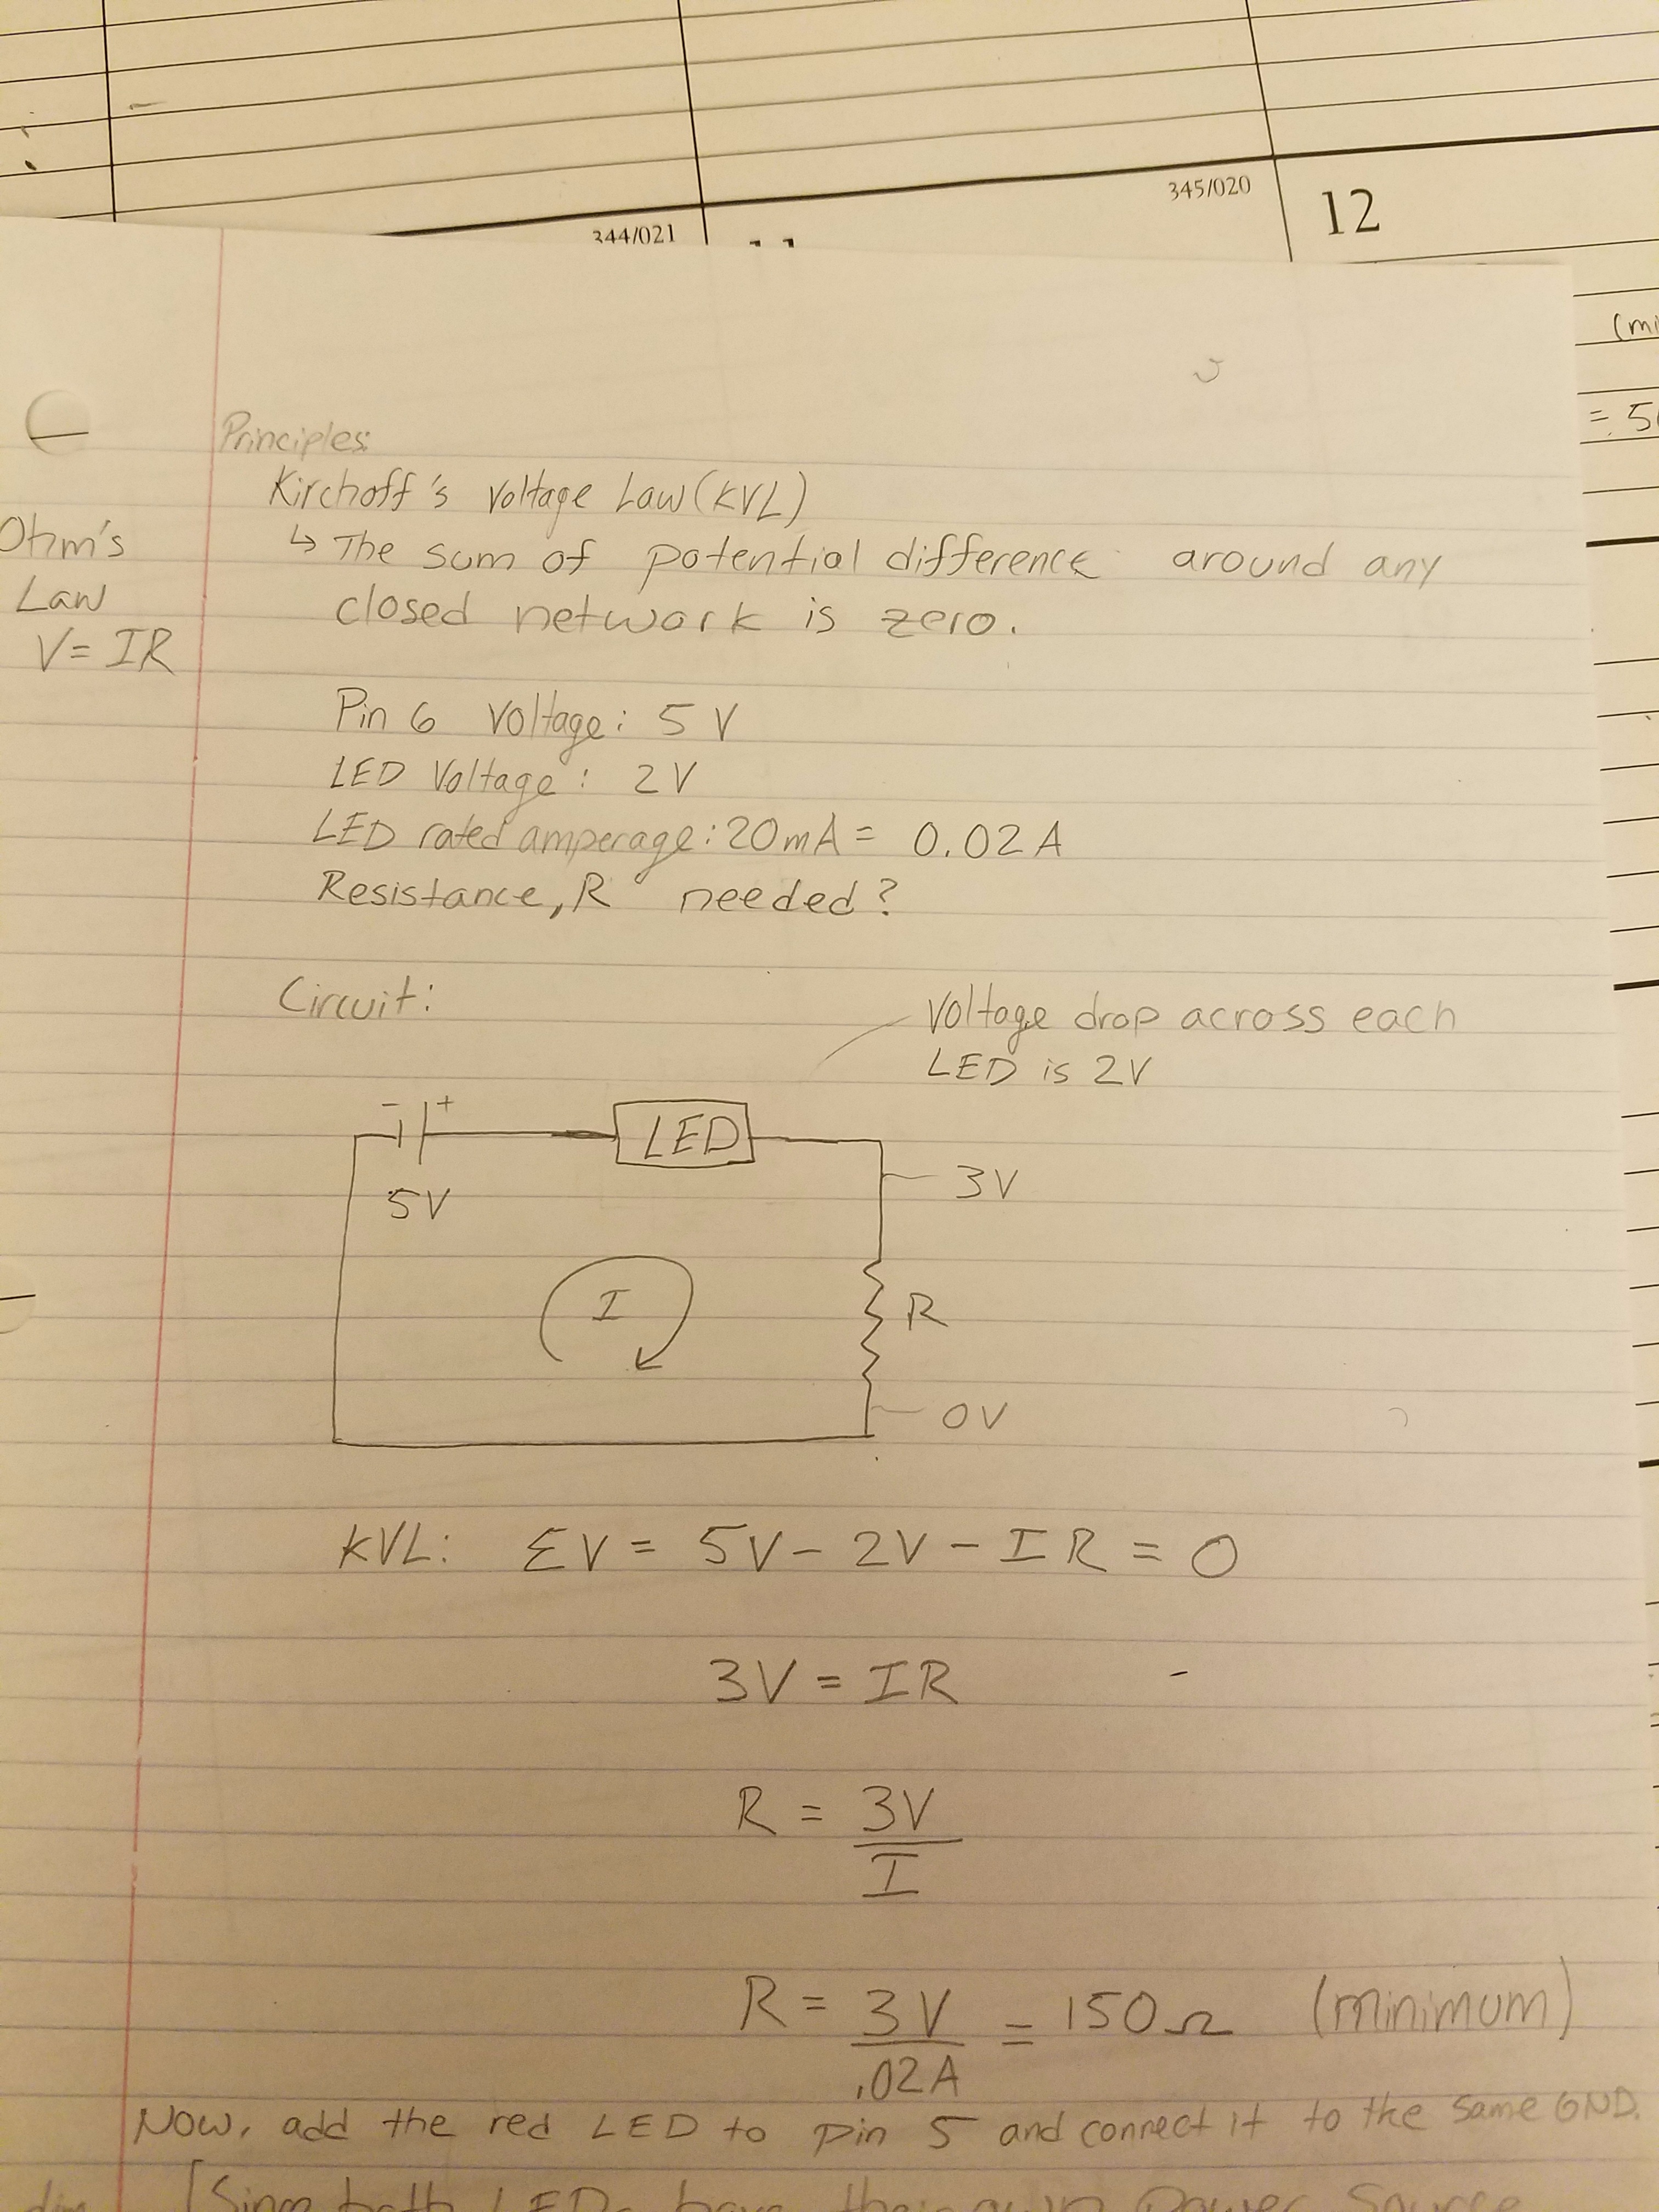 Principles:
Kirchoff's Voltage Law (KVL)
Ohm's
↳ The sum of potential difference around any
Law
closed network is zero.
V = IR
Pin 6 Voltage: 5V
LED Voltage: 2V
LED rated amperage: 20mA = 0.02A
Resistance, R needed?
Circuit:
Voltage drop across each
LED is 2V
- +
5V
LED
3V
I
R
0V
KVL: ΣV = 5V - 2V - IR = 0
3V = IR
R = 3V
I
R = 3V = 150Ω (minimum)
.02A
Now, add the red LED to pin 5 and connect it to the same GND.
[Since both LEDs have their own Power Source
dim
344/021
345/020
12
(mi